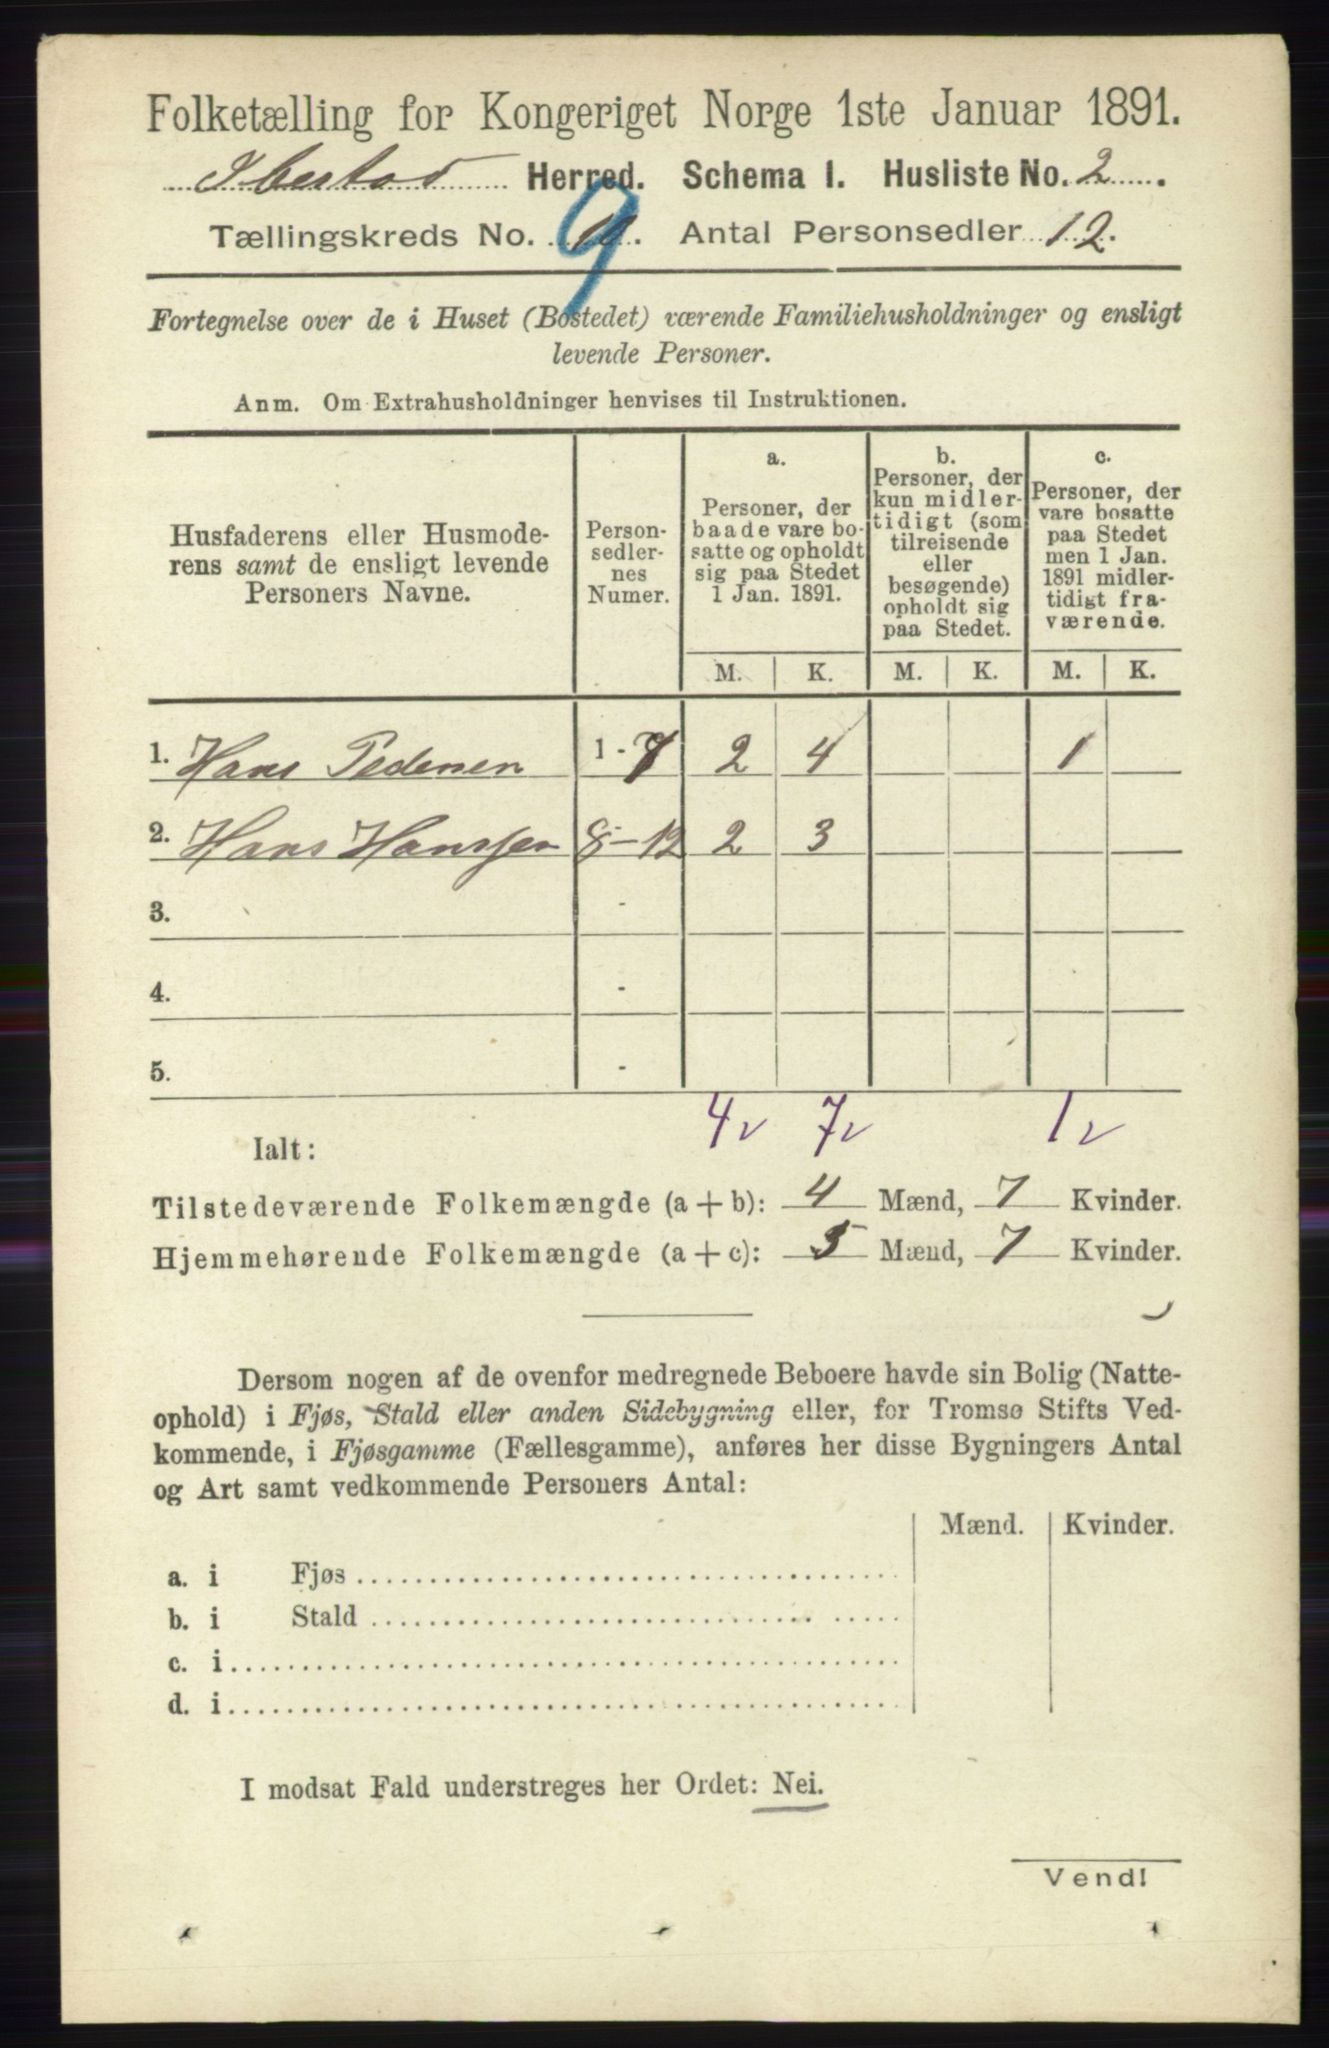 Folketælling for Kongeriget Norge 1ste Januar 1891.
Ibestad Herred. Schema I. Husliste No. 2.
Tællingskreds No. 10. 9 Antal Personsedler 12.
Fortegnelse over de i Huset (Bostedet) værende Familiehusholdninger og ensligt
levende Personer.
Anm. Om Extrahusholdninger henvises til Instruktionen.
Husfaderens eller Husmode-
rens samt de ensligt levende
Personers Navne.
Person-
sedler-
nes
Numer.
a.
Personer, der
baade vare bo-
satte og opholdt
sig paa Stedet
1 Jan. 1891.
b.
Personer, der
kun midler-
tidigt (som
tilreisende
eller
besøgende)
opholdt sig
paa Stedet.
c.
Personer, der
vare bosatte
paa Stedet
men 1 Jan.
1891 midler-
tidigt fra-
værende.
M. K. M. K. M. K.
1. Hans Pedersen 1-7 2 4 1
2. Hans Hanssen 8-12 2 3
3. -
4. -
5. -
4v 7v 1v
Ialt:
Tilstedeværende Folkemængde (a + b): 4 Mænd, 7 Kvinder.
Hjemmehørende Folkemængde (a + c): 5 Mænd, 7 Kvinder.
Dersom nogen af de ovenfor medregnede Beboere havde sin Bolig (Natte-
ophold) i Fjøs, Stald eller anden Sidebygning eller, for Tromsø Stifts Ved-
kommende, i Fjøsgamme (Fællesgamme), anføres her disse Bygningers Antal
og Art samt vedkommende Personers Antal:
Mænd. Kvinder.
a. i Fjøs
b. i Stald
c. i
d. i
I modsat Fald understreges her Ordet: Nei.
Vend!